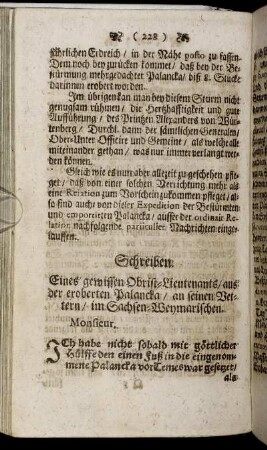 ( 228 )
führlichen Erdreich / in der Nähe posto zu fassen.
Dem noch bey zurücken kommet / daß bey der Be-
stürmung mehrgedachter Palancka / biß 8. Stucke
darinnen erobert worden.
Im übrigen kan man bey diesem Sturm nicht
genugsam rühmen / die Hertzhafftigkeit und gute
Aufführung / des Printzen Alexanders von Wür-
tenberg / Durchl. dann der sämtlichen Generalen /
Ober-Unter Officire und Gemeine / als welche alle
miteinander gethan / was nur immer verlangt wer-
den können.
Gleich wie es nun aber allezeit zu geschehen pfle-
get / daß von einer solchen Verrichtung mehr als
eine Relation zum Vorschein zukommen pfleget / al-
so sind auch von dieser Expedition der Bestürmten
und emportirten Palancka / ausser der ordinair Re-
lation nachfolgende particulier Nachrichten einge-
lauffen.
Schreiben.
Eines gewissen Obrist-Lieutenants / aus
der eroberten Palancka / an seinen Vet-
tern / im Sachsen-Weymarischen.
Monsieur.
ICh habe nicht sobald mit göttlicher
Hülffe den einen Fuß in die eingenom-
mene Palancka vor Temeswar gesetzet /
als